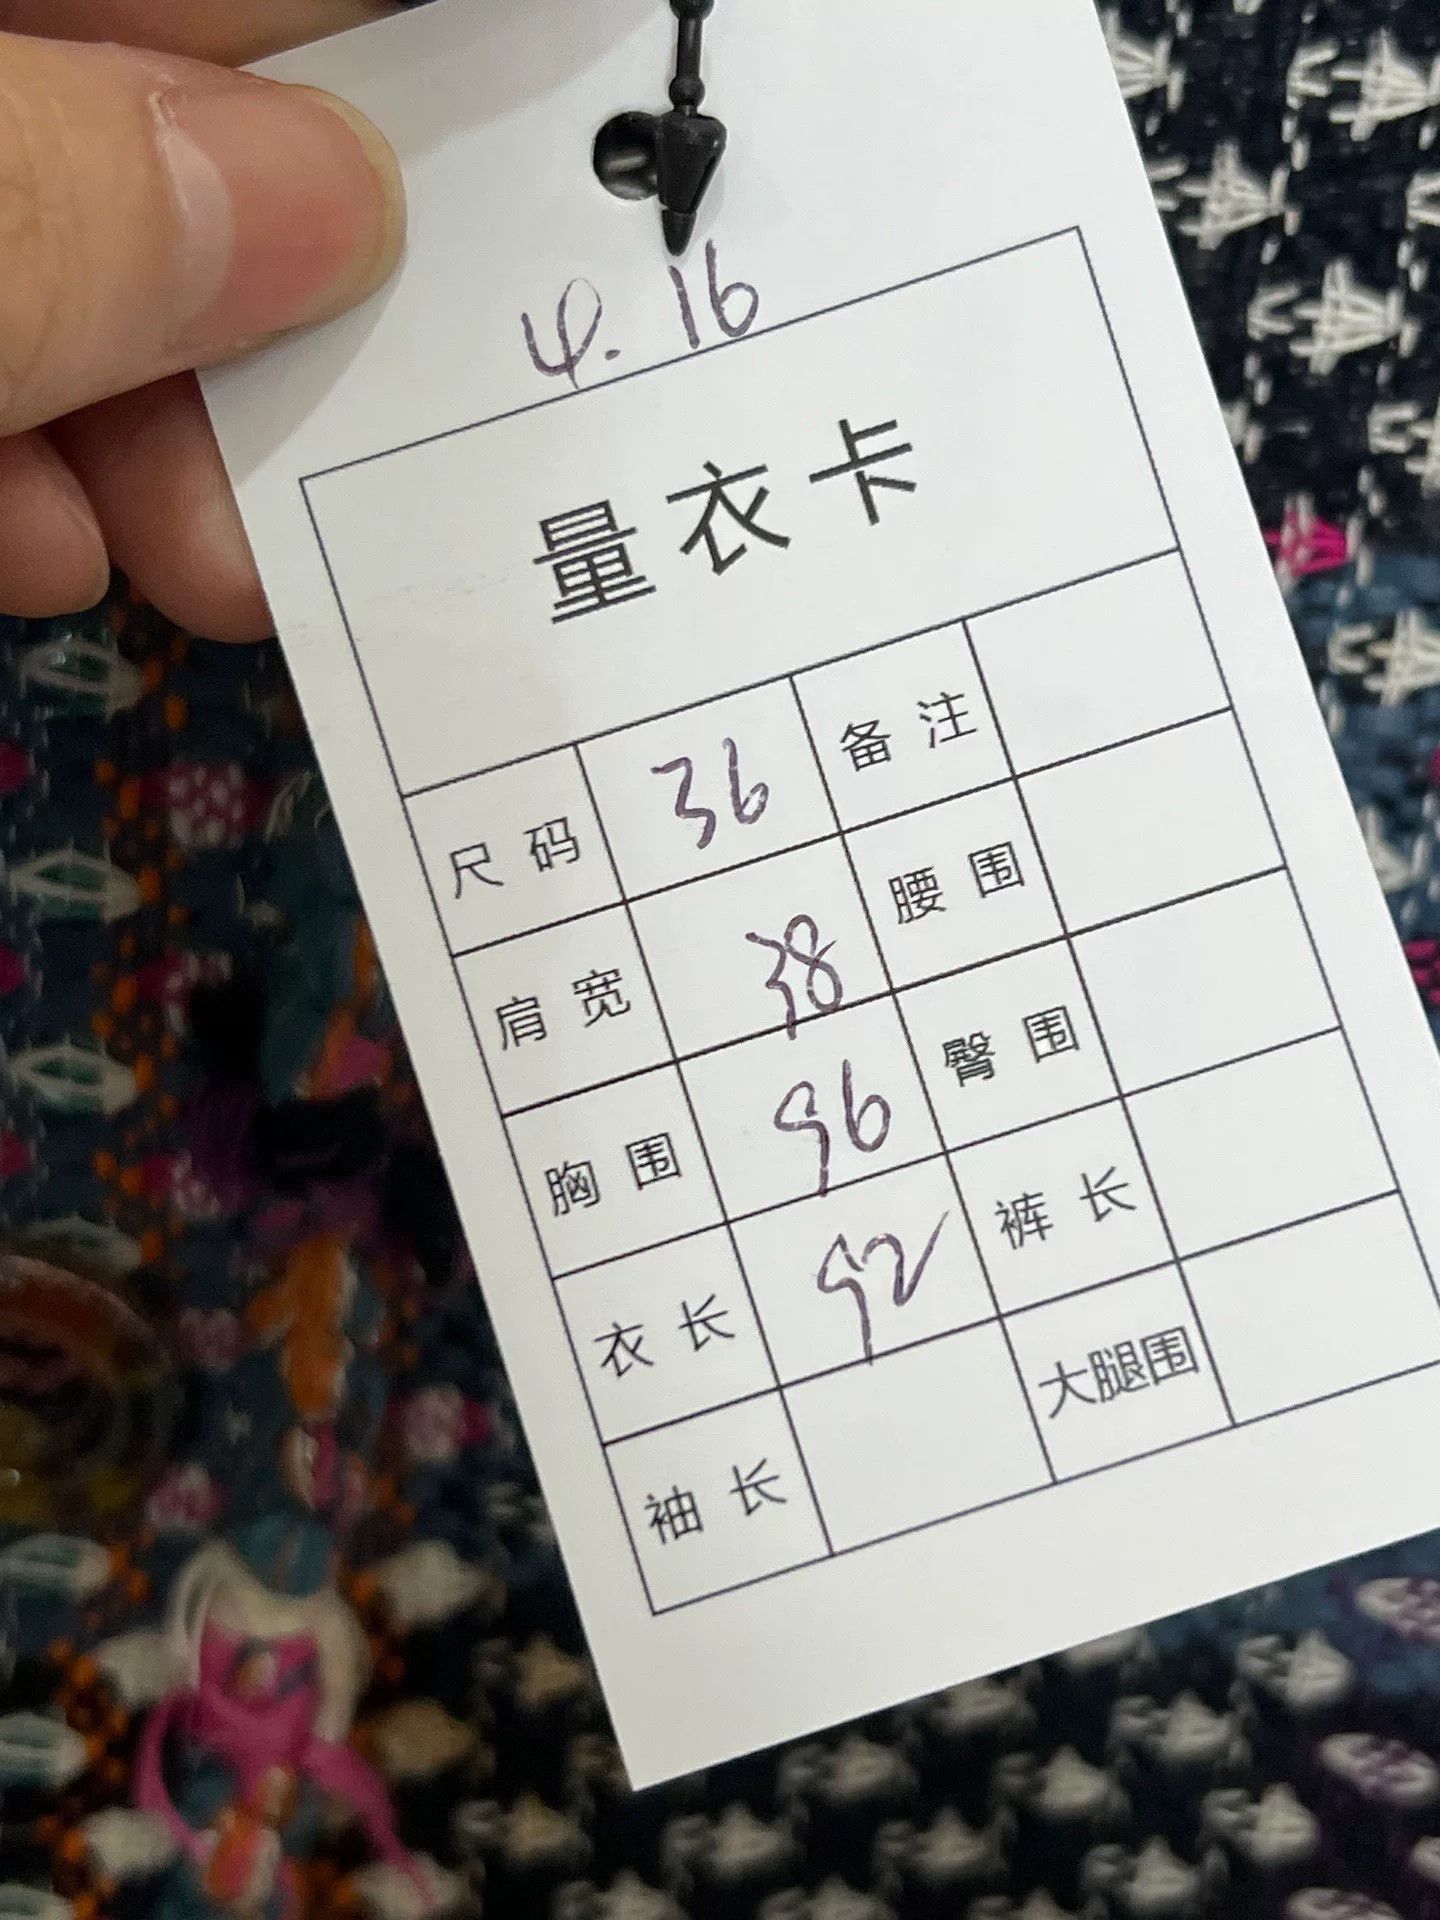 4.16
量衣卡
尺码 36 备注
肩宽 38 腰围
胸围 96 臀围
衣长 92 裤长
袖长 大腿围